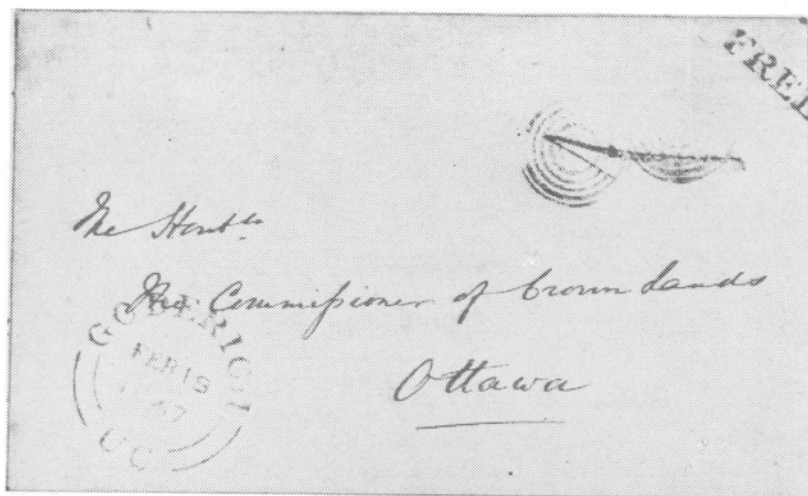 FREE
The Honble
The Commissioner of Crown Lands
Ottawa
GODERICH
FEB 19
1867
UC